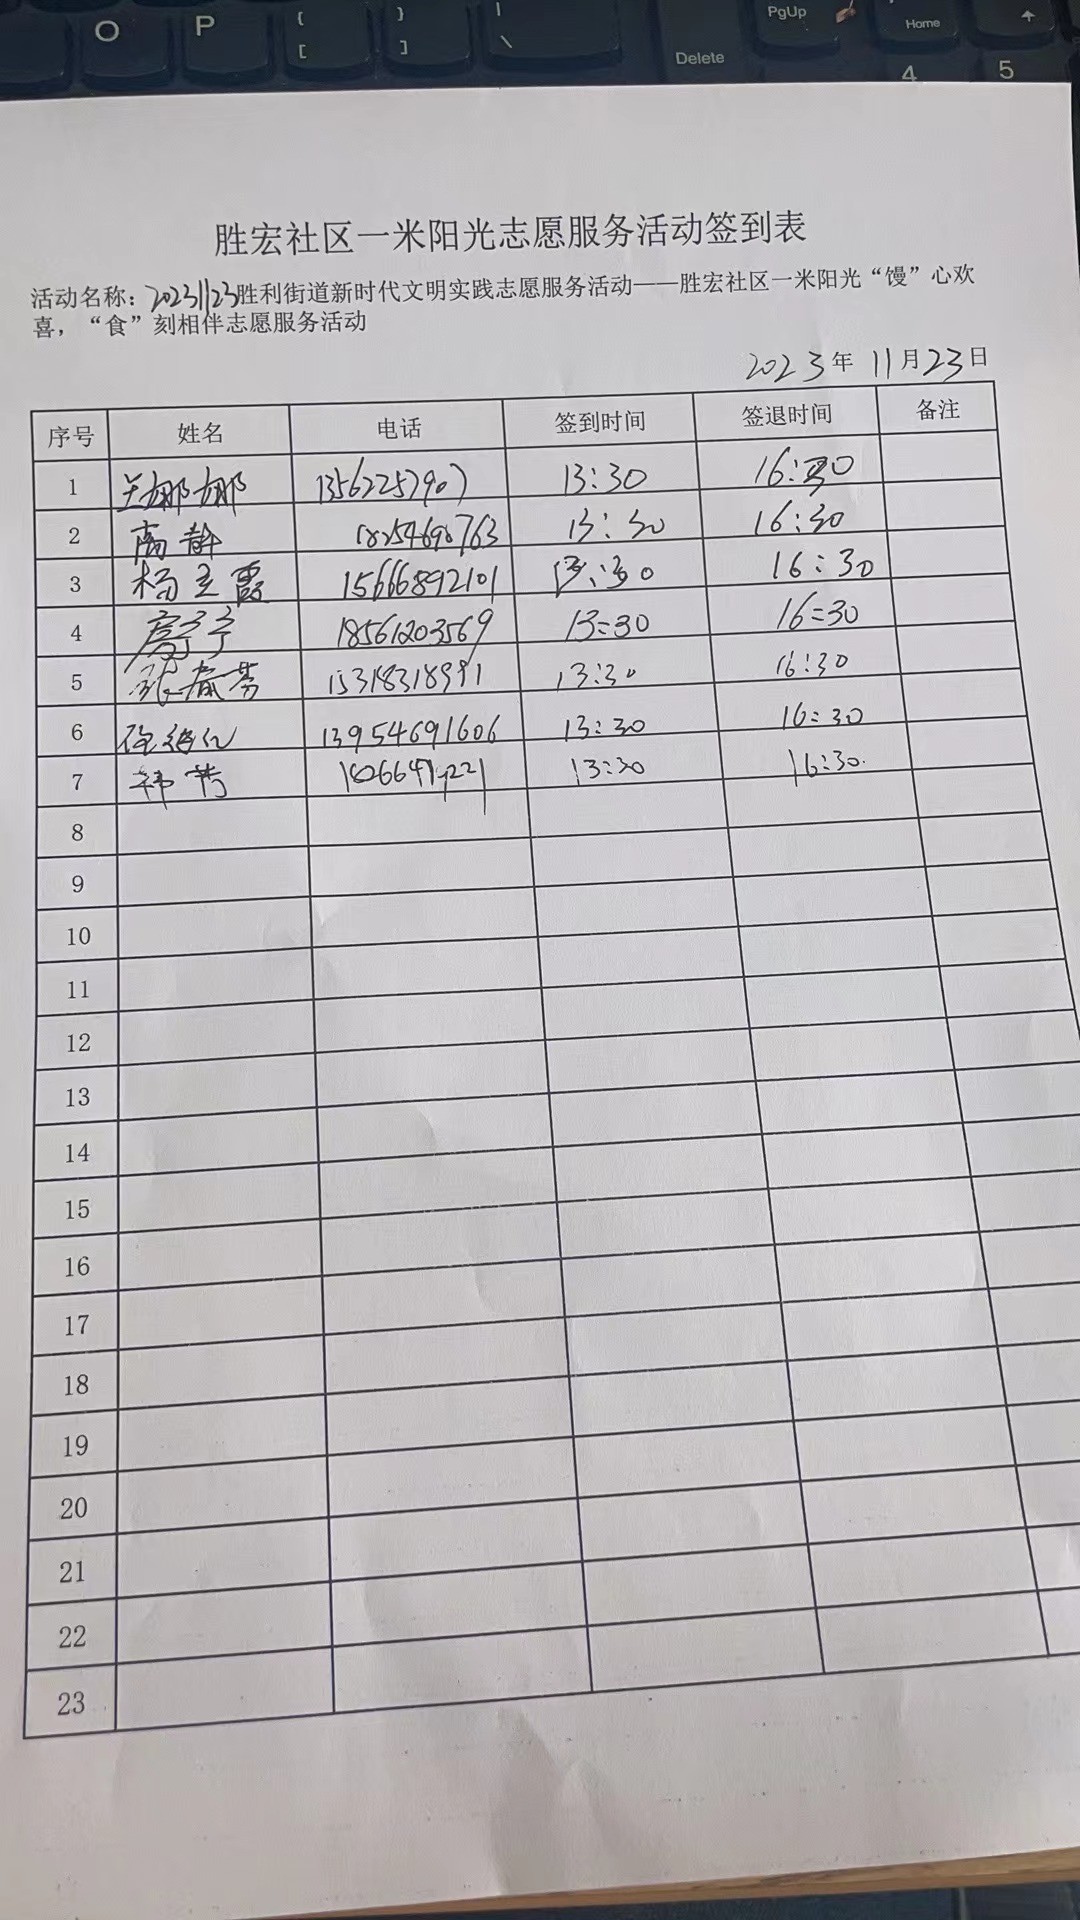 O P { [ } ] | \ Delete PgUp Home 4 5
胜宏社区一米阳光志愿服务活动签到表
活动名称：20231123胜利街道新时代文明实践志愿服务活动——胜宏社区一米阳光“馒”心欢
喜，“食”刻相伴志愿服务活动
2023年 11月23日
序号 姓名 电话 签到时间 签退时间 备注
1 娜娜 13562257907 13:30 16:30
2 高静 18254690763 13:30 16:30
3 杨立霞 15666892101 13:30 16:30
4 18561203569 13:30 16:30
5 张春芳 15318318991 13:30 16:30
6 13954691606 13:30 16:30
7 韩芳 13:30 16:30
8
9
10
11
12
13
14
15
16
17
18
19
20
21
22
23